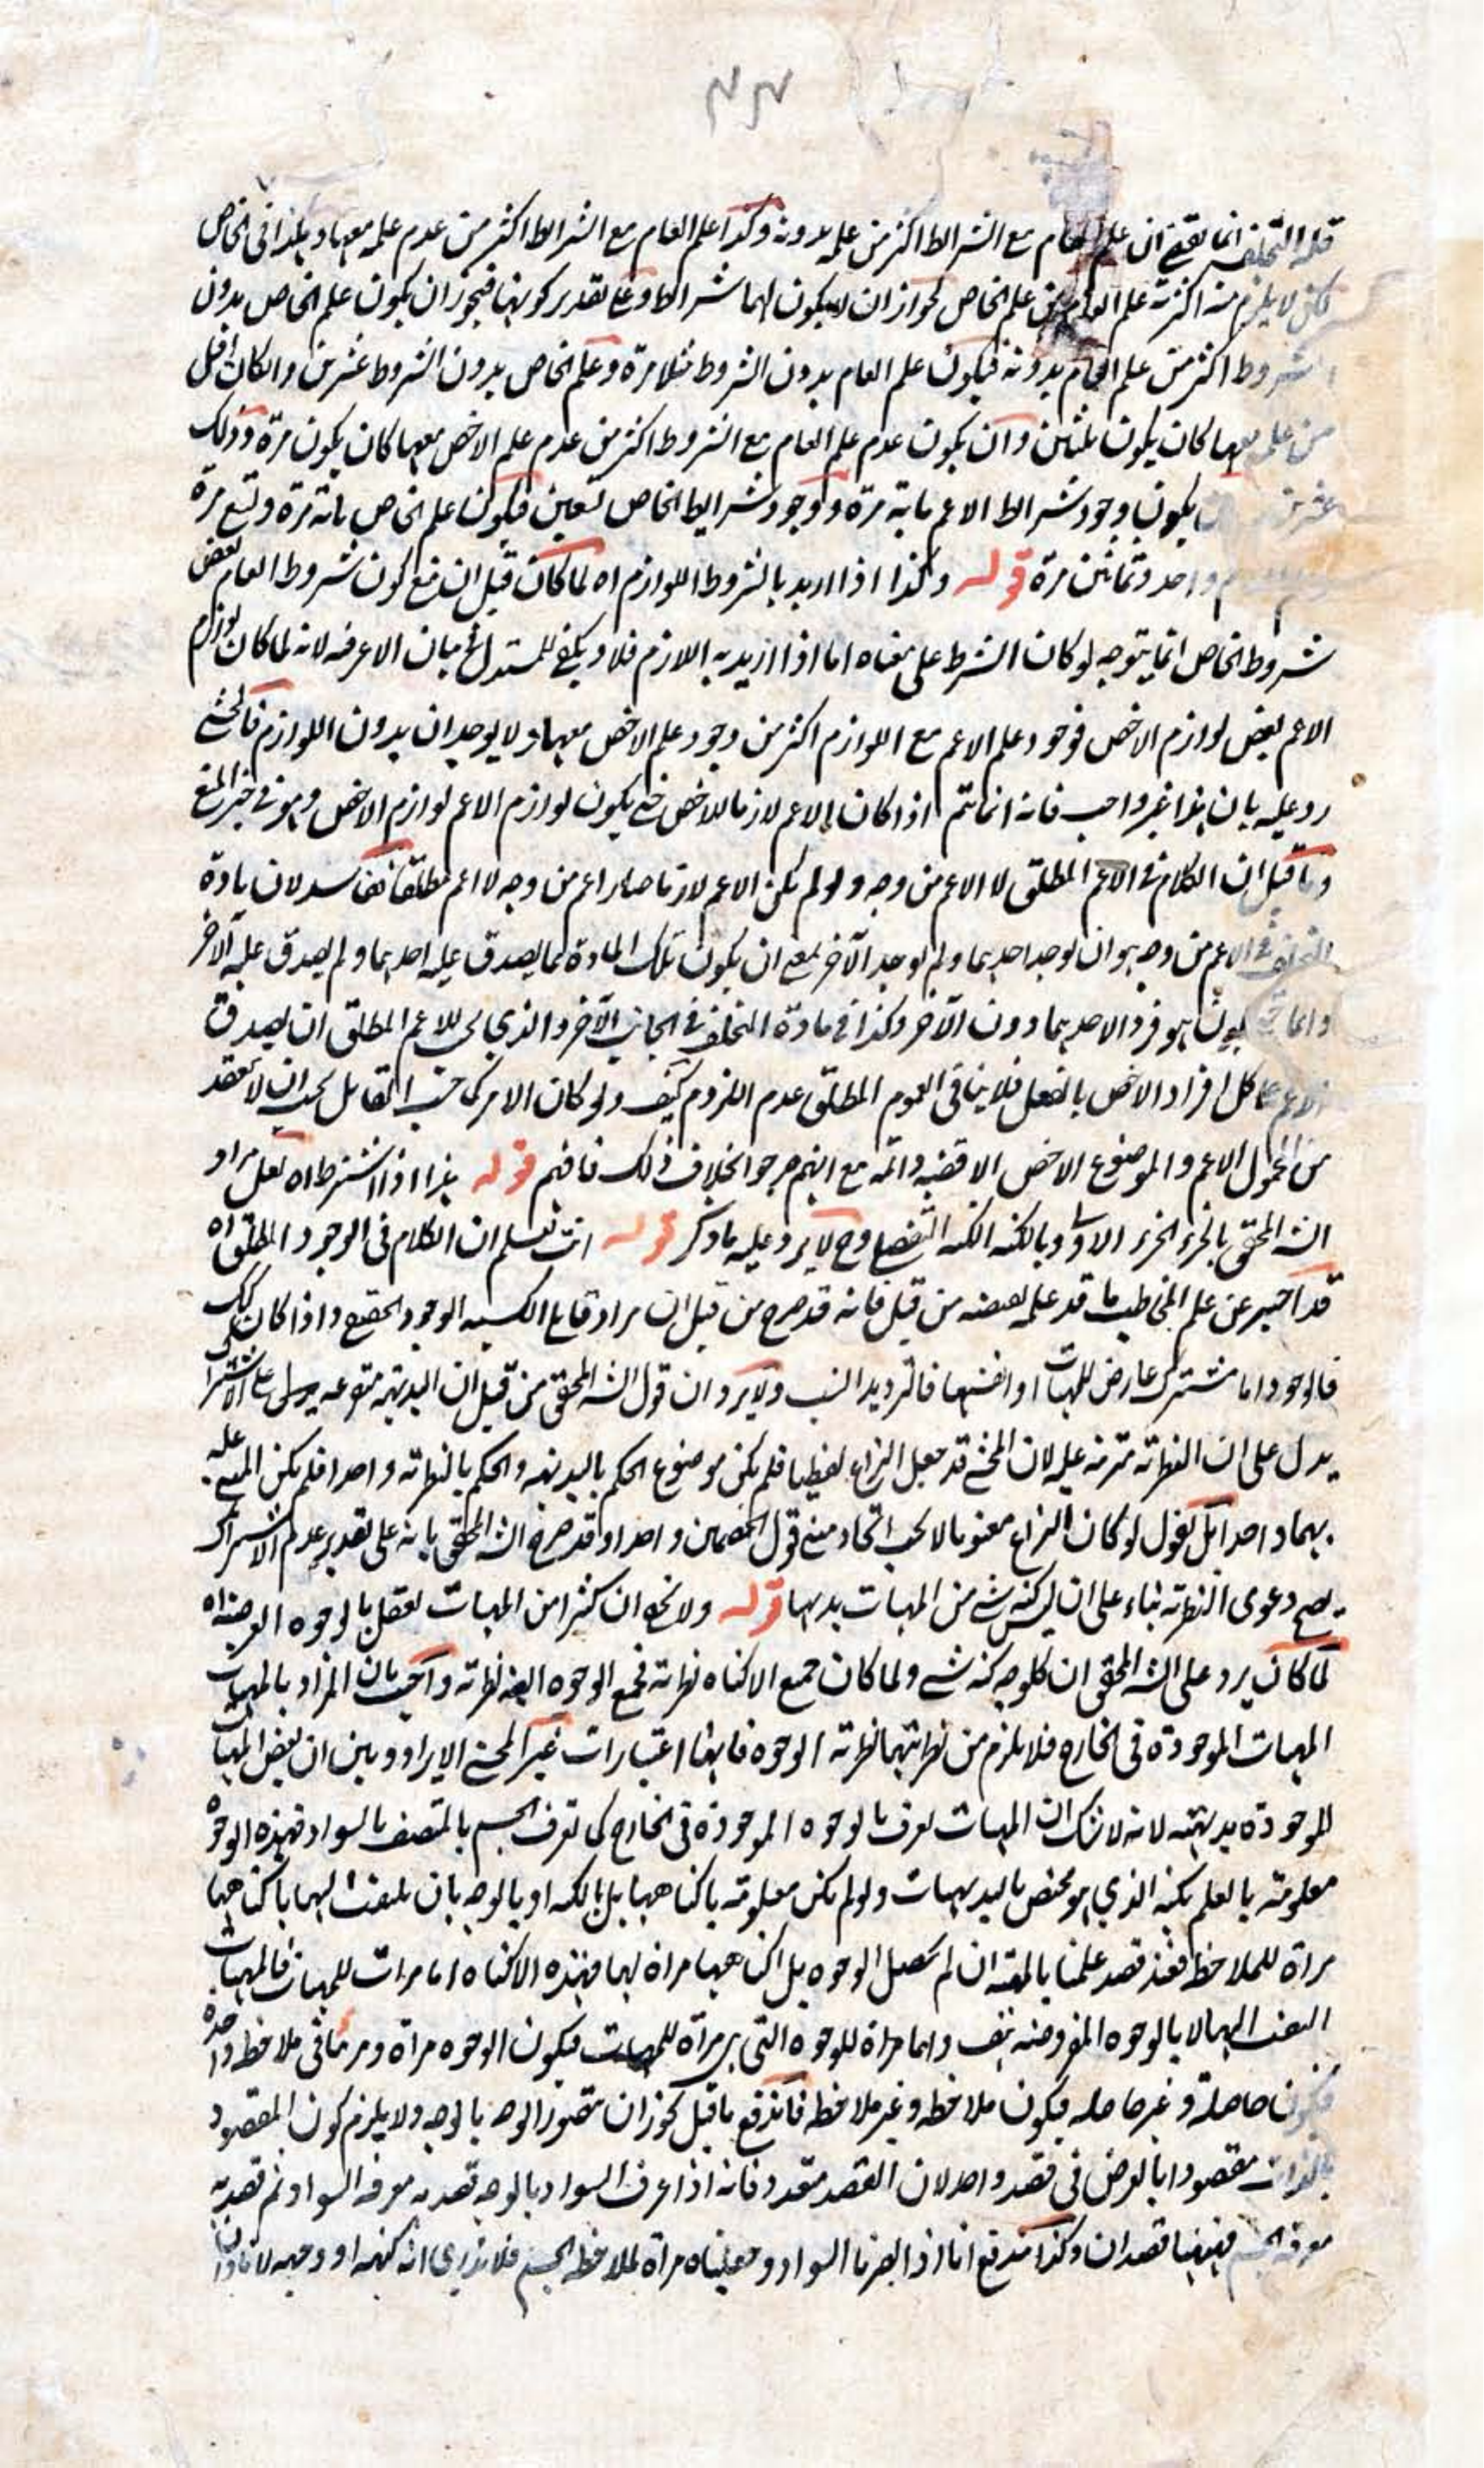 قلة التخلف انما يقتضي ان علم العام مع الشرائط اكثر من علمه بدونه وكذا علم العام مع الشرائط اكثر من عدم علمه معها وهذا في الخاص
لكن لا يلزم منه اكثرية علم العام من علم الخاص لجواز ان لا يكون لهما شرائط وعلى تقدير كونها فيجوز ان يكون علم الخاص بدون
الشروط اكثر من علم العام بدونه فيكون علم العام بدون الشروط مثلا مرة وعلم الخاص بدون الشروط عشرين والكان اقل
من علمه معها كان يكون ثلثين وان يكون عدم علم العام مع الشروط اكثر من عدم علم الاخص معها كان يكون مرة وذلك
عشرين يكون وجود شرائط الاعم مائة مرة ووجود شرايط الخاص تسعين فيكون علم الخاص مائة مرة وتسع مرة
واحد وثمانين مرة قوله وكذا اذا اريد بالشروط اللوازم اه لما كان قيل ان منع كون شروط العام بعض
شروط الخاص انما يتوجه لو كان الشرط على معناه اما اذا اريد به اللازم فلا ويكفي للمستدل في بيان الاعرفية لانه لما كان لوازم
الاعم بعض لوازم الاخص فوجود علم الاعم مع اللوازم اكثر من وجود علم الاخص معها ولا يوجدان بدون اللوازم فالمحشي
رد عليه بان هذا غير واجب فانه انما تتم اذا كان الاعم لازما للاخص حتى يكون لوازم الاعم لوازم الاخص وهو في حيز المنع
وما قيل ان الكلام في الاعم المطلق لا الاعم من وجه ولو لم يكن الاعم لازما صار اعم من وجه لا اعم مطلقا ففاسد لان مادة
التخلف في الاعم من وجه هو ان يوجد احدهما ولم يوجد الآخر بمعنى ان يكون تلك المادة مما يصدق عليه احدهما ولم يصدق عليه الآخر
وانما يكون هو فرد الاحدهما دون الآخر وكذا في مادة التخلف في الجانب الآخر والذي يجب للاعم المطلق ان يصدق
الاعم على كل افراد الاخص بالفعل فلا ينافي العموم المطلق عدم اللزوم كيف ولو كان الامر كما حسب القائل يجب ان لا تنعقد
من المحمول الاعم والموضوع الاخص الا قضية دائمة مع انهم صرحوا بخلاف ذلك فافهم قوله هذا اذا اشترط اه لعل مراد
الشه المحقق بالجزء الجزء الاولي وبالكنه الكنه التفصيلي وح لا يرد عليه ما ذكر قوله انت تعلم ان الكلام في الوجود المطلق اه
قد اخبر عن علم المخاطب ما قد علمه بعضه من قبل فانه قد صرح من قبل ان مراد قائل الكسبية الوجود الحقيقي واذا كان كذلك
فالوجود اما مشترك عارض للمهيات او انفسها فالترديد انسب ولا يرد ان قول الشه المحقق من قبل ان البديهية متوعه على الاشتراك
يدل على ان النظرية مترتبة عليه لان المحشي قد جعل النزاع لفظيا فلم يكن موضوع الحكم بالبديهة والحكم بالنظرية واحدا فلم يكن المبنى عليه
بهما واحدا بل نقول لو كان النزاع معنويا لا يجب اتحاد مبنى قول الخصمين واحدا وقد صرح الشه المحقق بانه على تقدير عدم الاشتراك
يصح دعوى النظرية بناء على ان ليس كنه شي من المهيات بديهيا قوله ولا يخفى ان كثيرا من المهيات تعقل بالوجوه العرضية اه
لما كان يرد على الشه المحقق ان كل وجه كنه شي ولما كان جميع الاكناه نظرية فجميع الوجوه ايضا نظرية واجيب بان المراد بالمهيات
المهيات الموجودة في الخارج فلا يلزم من نظريتهما نظرية الوجوه فانها اعتبارات غير المحشي الايراد وبين ان بعض المهيات
الموجودة بديهية لانه لا شك ان المهيات تعرف بالوجوه الموجودة في الخارج كما تعرف الجسم بالمتصف بالسواد فهذه الوجوه
معلومة بالعلم بكنه الذي هو مختص بالبديهيات ولو لم يكن معلومة باكناهها بل بالكنه او بالوجه بان يلتفت اليها باكناهها
مرآة للملاحظة فعند قصد علمنا بالمهية ان لم تحصل الوجوه بل اكناهها مرآة لها فهذه الاكناه اما مرات للمهيات فالمهيات
التفت اليها لا بالوجوه المفروضة هف واما مرآة للوجوه التي هي مرآة للمهيات فيكون الوجوه مرآة ومرئيا في ملاحظة واحدة
فيكون حاصلة وغير حاصلة فيكون ملاحظة وغير ملاحظة فاندفع ما قيل يجوز ان يتصور الوجه بالوجه ولا يلزم كون المقصود
بالذات مقصودا بالعرض في قصد واحد لان القصد متعدد فانه اذا عرف السواد بالوجه تقصد به معرفة السواد ثم تقصد به
معرفة الجسم فههنا قصدان وكذا يندفع انا اذا ابصرنا السواد وجعلناه مرآة لملاحظة الجسم فلا ندري انه كنهه او وجهه لانا